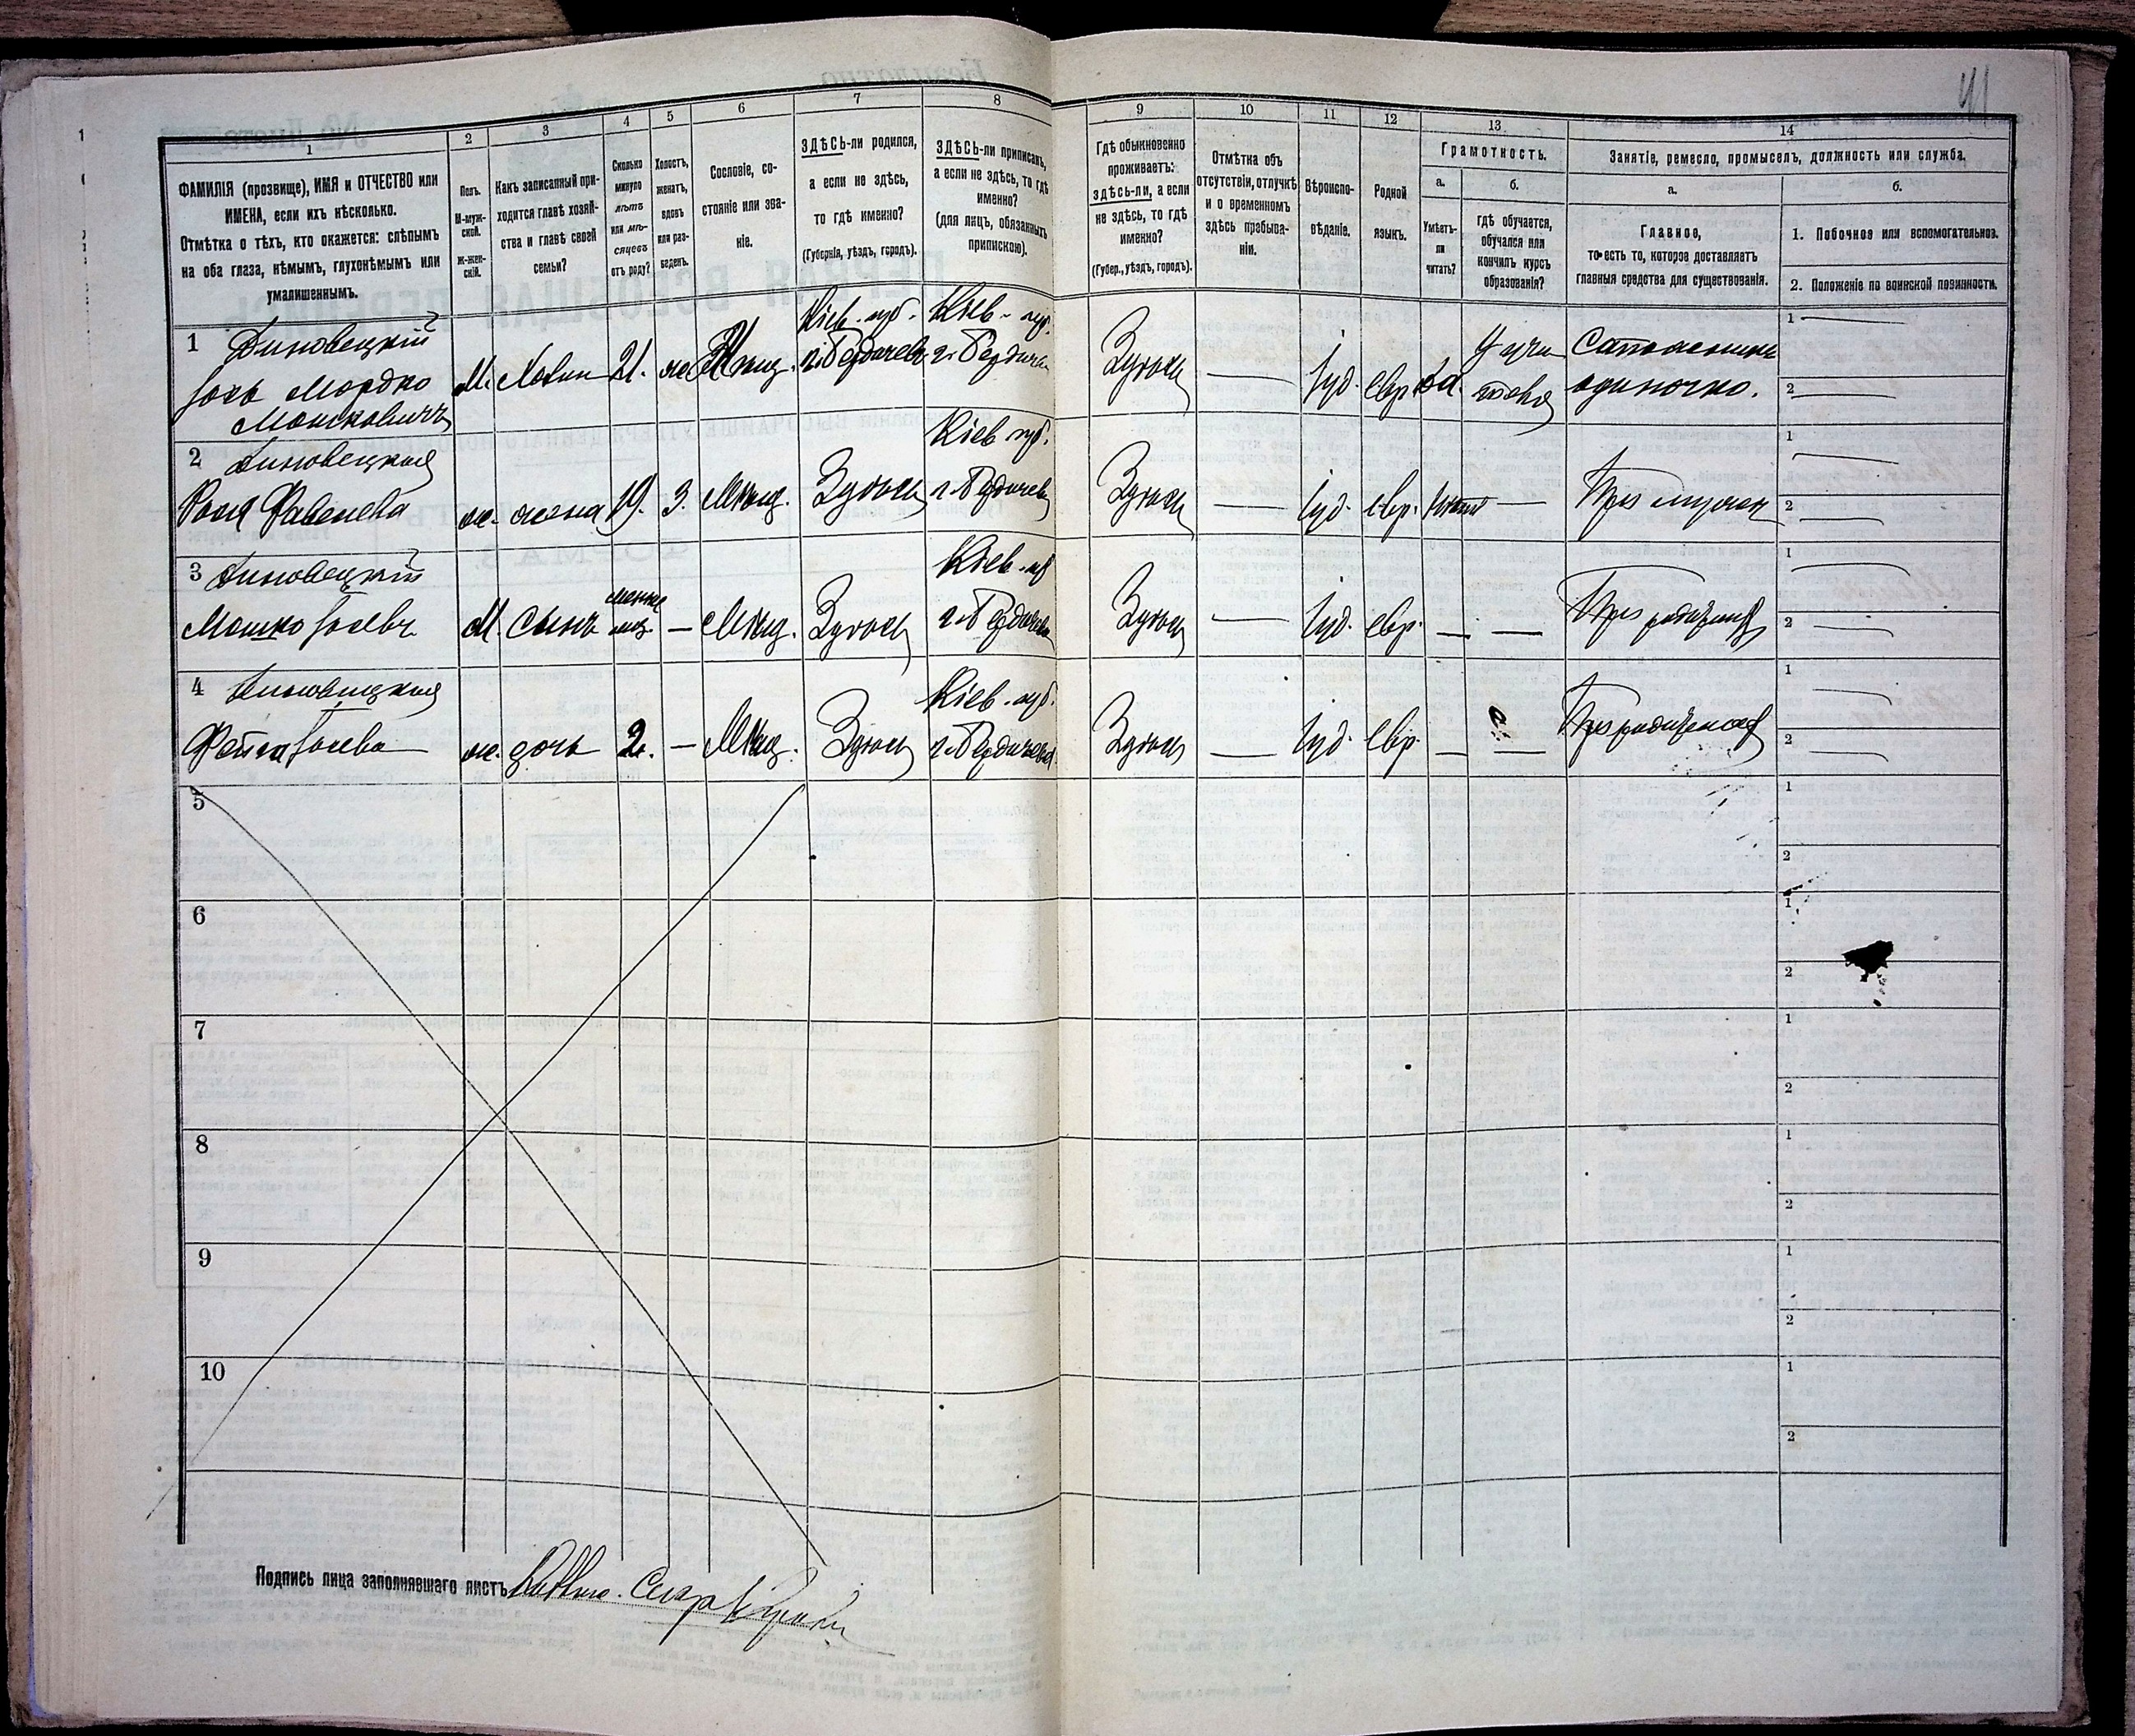 41
1
2
3
4
5
6
7
8
9
10
11
12
13
14
ФАМИЛІЯ (прозвище), ИМЯ и ОТЧЕСТВО или
ИМЕНА, если ихъ нѣсколько.
Отмѣтка о тѣхъ, кто окажется: слѣпымъ
на оба глаза, нѣмымъ, глухонѣмымъ или
умалишеннымъ.
Полъ.
М-муж-
ской.
Ж-жен-
скій.
Какъ записанный при-
ходится главѣ хозяй-
ства и главѣ своей
семьи?
Сколько
минуло
лѣтъ
или мѣ-
сяцевъ
отъ роду?
Холостъ,
женатъ,
вдовъ
или раз-
веденъ.
Сословіе, со-
стояніе или зва-
ніе.
ЗДѢСЬ-ли родился,
а если не здѣсь,
то гдѣ именно?
(Губернія, уѣздъ, городъ).
ЗДѢСЬ-ли приписанъ,
а если не здѣсь, то гдѣ
именно?
(для лицъ, обязанныхъ
припискою).
Гдѣ обыкновенно
проживаетъ:
здѣсь-ли, а если
не здѣсь, то гдѣ
именно?
(Губер., уѣздъ, городъ).
Отмѣтка объ
отсутствіи, отлучкѣ
и о временномъ
здѣсь пребыва-
ніи.
Вѣроиспо-
вѣданіе.
Родной
языкъ.
Грамотность.
а.
б.
Умѣетъ-
ли
читать?
гдѣ обучается,
обучался или
кончилъ курсъ
образованія?
Занятіе, ремесло, промыселъ, должность или служба.
а.
б.
Главное,
то-есть то, которое доставляетъ
главныя средства для существованія.
1. Побочное или вспомогательное.
2. Положеніе по воинской повинности.
1
Мордко
Мошковичъ
М.
Хозяин
21.
Мѣщ.
Кіев. губ.
г. Бердичев
Кіев. губ.
г. Бердичев
Здѣсь
—
Іуд.
евр.
да.
Сапожникъ
одиночка.
1 —
2 —
2
ж.
жена
19.
З.
Мѣщ.
Здѣсь
Кіев губ.
г. Бердичев
Здѣсь
—
Іуд.
евр.
Нѣтъ
—
При мужѣ
1 —
2 —
3
Мошко
М.
Сынъ
—
Мѣщ.
Здѣсь
Кіев. губ
г. Бердичев
Здѣсь
—
Іуд.
евр.
—
—
При родителяхъ
1 —
2 —
4
ж.
дочь
2.
—
Мѣщ.
Здѣсь
Кіев. губ.
г. Бердичев
Здѣсь
—
Іуд.
Евр.
—
—
При родителяхъ
1 —
2 —
5
1
2
6
1
2
7
1
2
8
1
2
9
1
2
10
1
2
Подпись лица заполнявшаго листъ